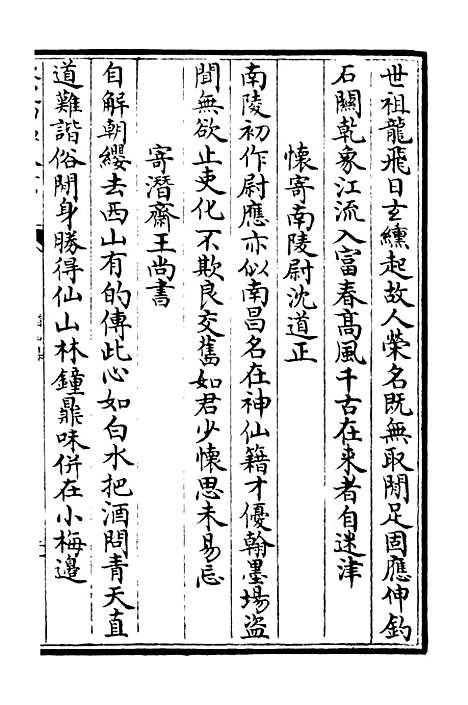 世祖龍飛日玄纁起故人榮名既無取閒足固應伸釣
石闗乾象江流入富春髙風千古在来者自迷津
懐寄南陵尉沈道正
南陵初作尉應亦似南昌名在神仙籍才優翰墨場盗
聞無欲止吏化不欺良交舊如君少懐思未易忘
寄潛齋王尚書
自解朝纓去西山有的傳此心如白水把酒問青天直
道難諧俗閒身勝得仙山林鐘鼎味併在小梅邉